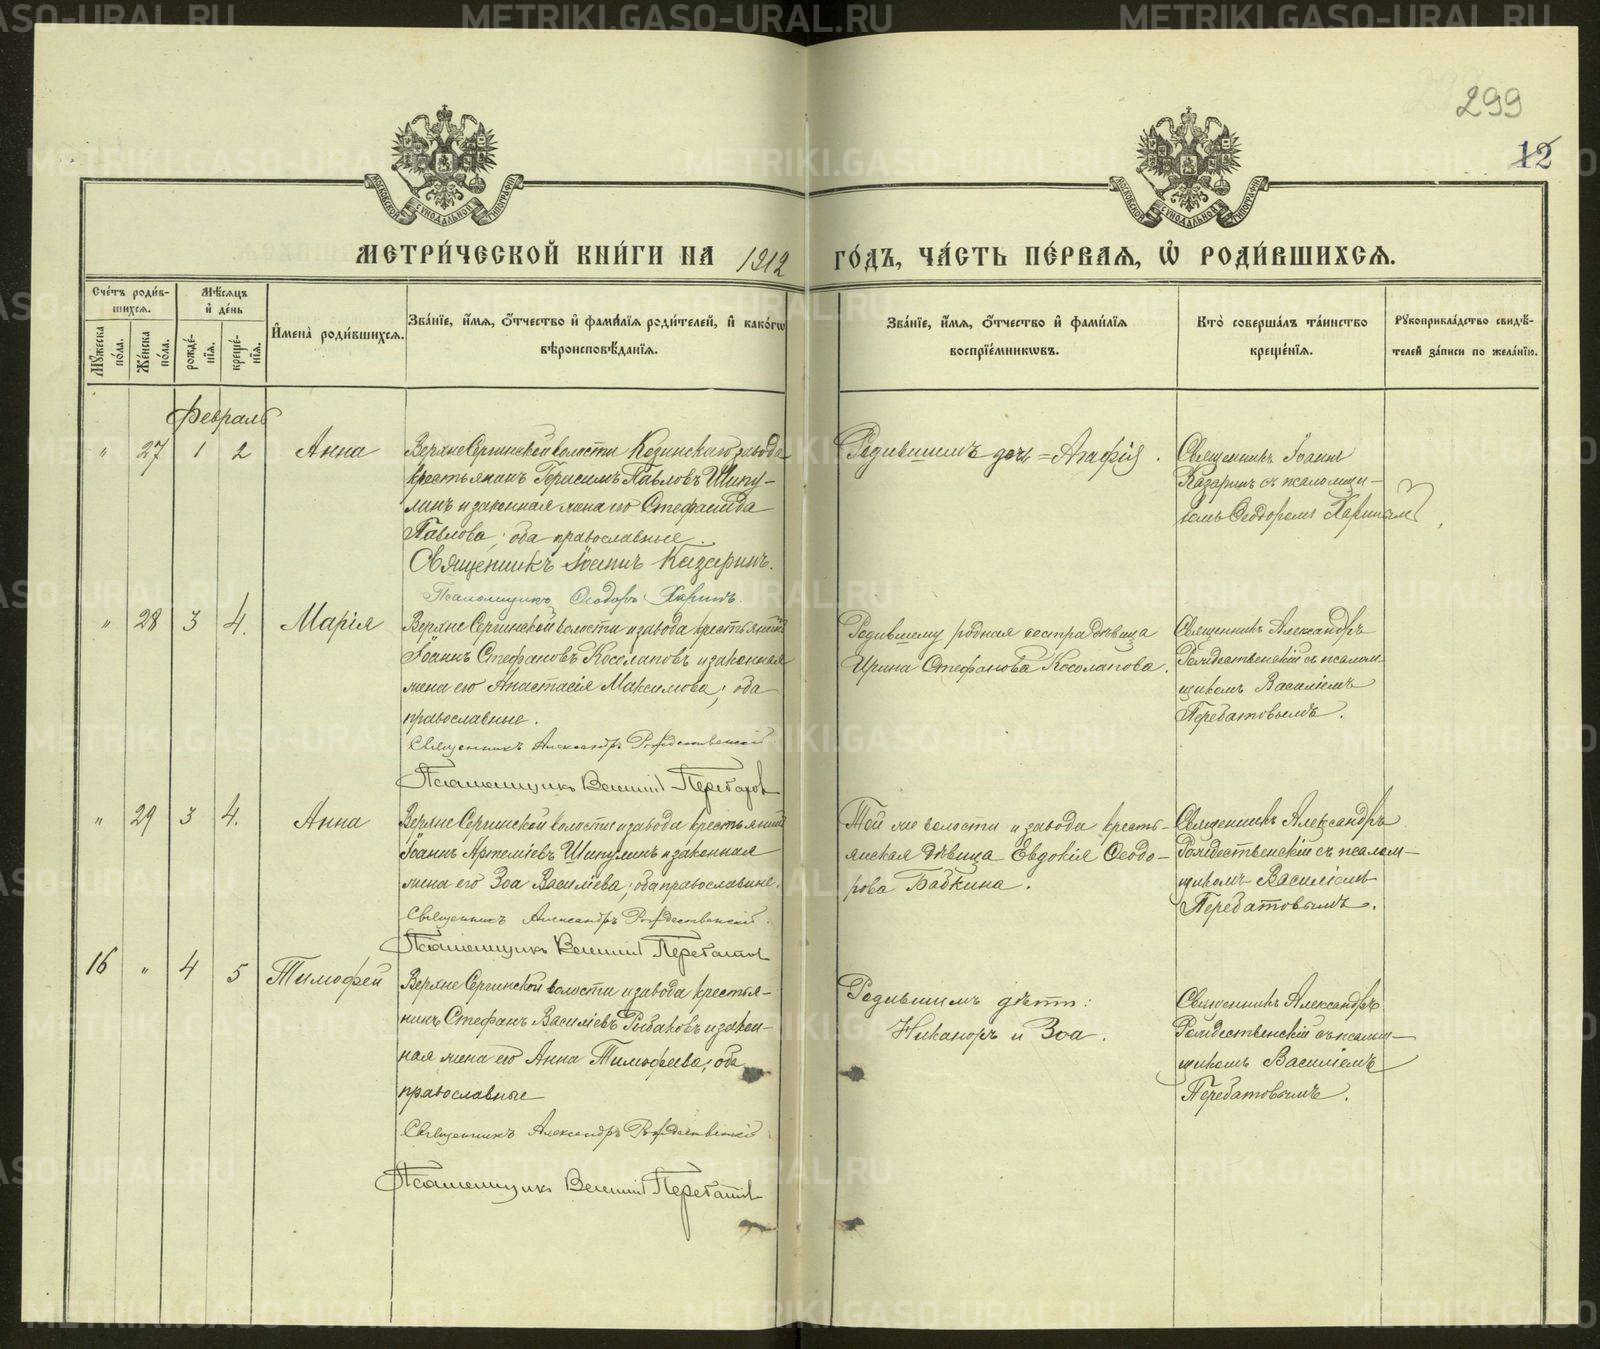 299
12
МЕТРИ́ЧЕСКОЙ КНИ́ГИ НА 1912 ГО́ДЪ, ЧА́СТЬ ПЕ́РВАѦ, Ѡ҆ РОДИ́ВШИХСѦ.
Сче́тъ роди́в-
шихсѧ.
Мꙋжеска по́ла.
Же́нска по́ла.
Мѣ́сѧцъ
и҆ де́нь
рожде́-
нїѧ.
креще́-
нїѧ.
И҆мена̀ роди́вшихсѧ.
Зва́нїе, и҆́мѧ, ѻ҆́тчество и҆ фами́лїѧ роди́телей, и҆ како́гѡ
вѣроисповѣ́данїѧ.
Зва́нїе, и҆́мѧ, ѻ҆́тчество и҆ фами́лїѧ
воспрїе́мникѡвъ.
Кто̀ соверша́лъ та́инство
креще́нїѧ.
Рꙋкоприкла́дство свидѣ́-
телей за́писи по жела́нїю.
Февраль
" 27 1 2 Анна
Верхне Сергинской волости Козинскаго завода
крестьянинъ Герасимъ Павловъ Шипу-
линъ и законная жена его Стефанида
Павлова; оба православные.
Священникъ Іоаннъ Казаринъ.
Псаломщикъ Ѳеодоръ Харинъ.
Родившимъ дочь = Агафія.
Священникъ Іоаннъ
Казаринъ съ псаломщи-
комъ Ѳеодоромъ Харинымъ.
" 28 3 4. Марія
Верхне Сергинской волости и завода крестьянинъ
Іоаннъ Стефановъ Косолаповъ и законная
жена его Анастасія Максимова; оба
православные.
Священникъ Александръ Рождественскій
Псаломщикъ Василій Перебатов
Родившему родная сестра дѣвица
Ирина Стефанова Косолапова.
Священникъ Александръ
Рождественскій съ псалом-
щикомъ Василіемъ
Перебатовымъ.
" 29 3 4. Анна
Верхне Сергинской волости и завода крестьянинъ
Іоаннъ Артеміевъ Шипулинъ и законная
жена его Зоа Василіева; оба православные.
Священникъ Александръ Рождественскій.
Псаломщикъ Василій Перебатов
Той же волости и завода кресть-
янская дѣвица Евдокія Ѳеодо-
рова Бабкина.
Священникъ Александръ
Рождественскій съ псалом-
щикомъ Василіемъ
Перебатовымъ.
16 " 4 5 Тимофей
Верхне Сергинской волости и завода крестья-
нинъ Стефанъ Василіевъ Рыбаковъ и закон-
ная жена его Анна Тимофеева; оба
православные
Священникъ Александръ Рождественскій
Псаломщикъ Василій Перебатов
Родившимъ дѣти:
Никаноръ и Зоа.
Священникъ Александръ
Рождественскій съ псалом-
щикомъ Василіемъ
Перебатовымъ.